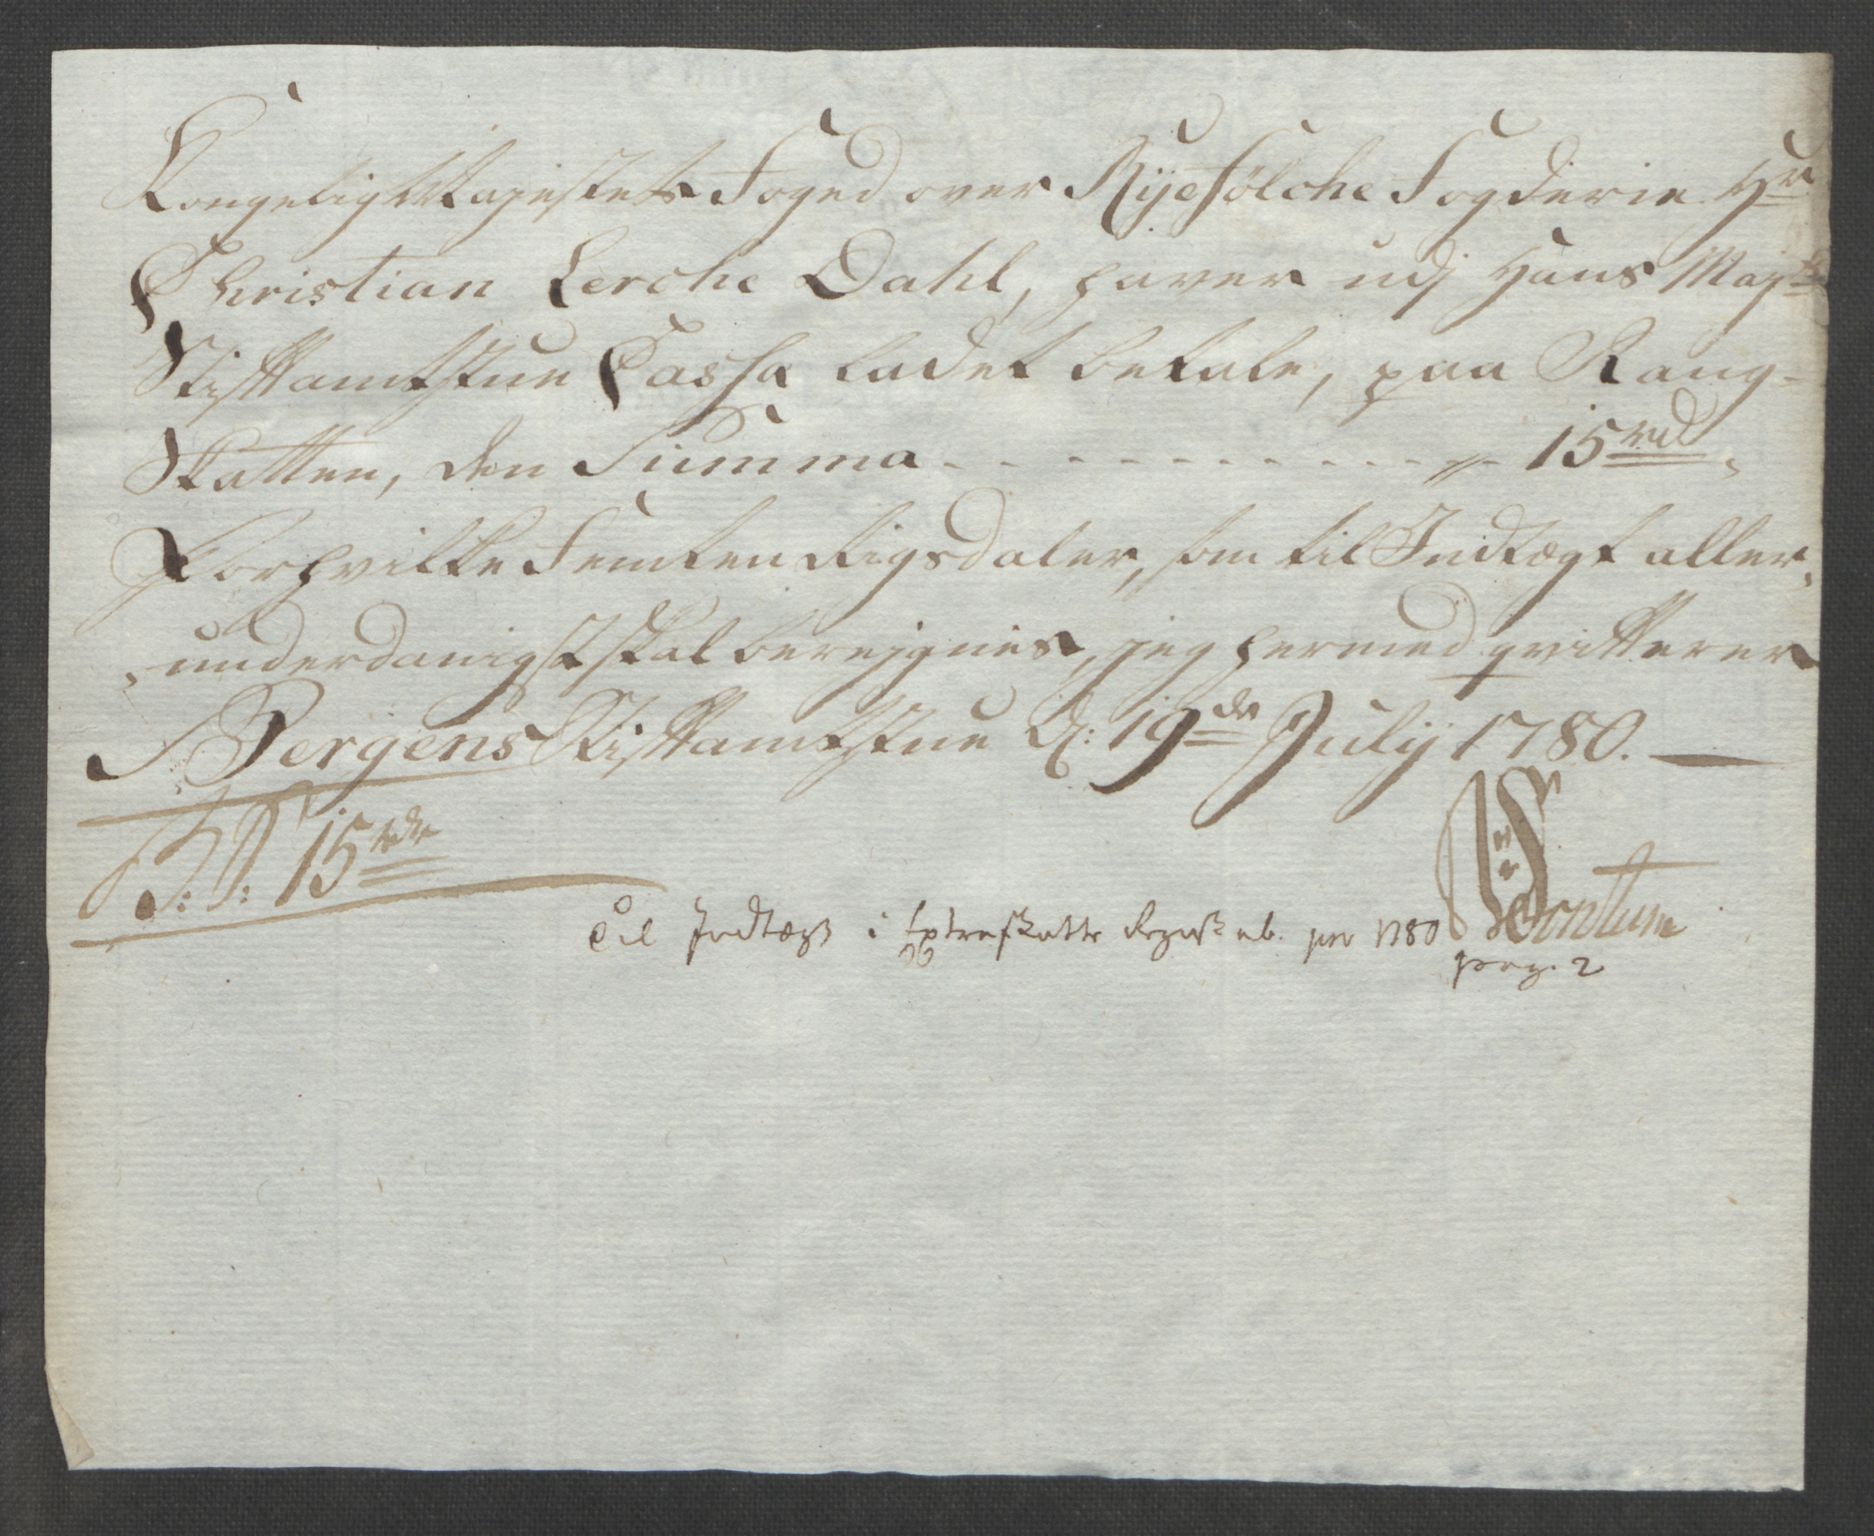 Kongelig Majestets Foged over Ryefölche Fogderie Hr
Christian Lerche Dahl, haver udj Hans Mayts
Stiftamtstue Cassa ladet betale, paa Rang-
Skatten, den Summa - - - - - - - - - - - - - 15 rd
Forhvilke Femten Rigsdaler, som til Indtægt aller-
underdanigst skal berejgnes, jeg hermed qvitterer
Bergens Stiftamtstue d: 19de Julij 1780.
15 rdr
Til Indtægt i Extraskatte Regnskab. pro 1780
pag. 2